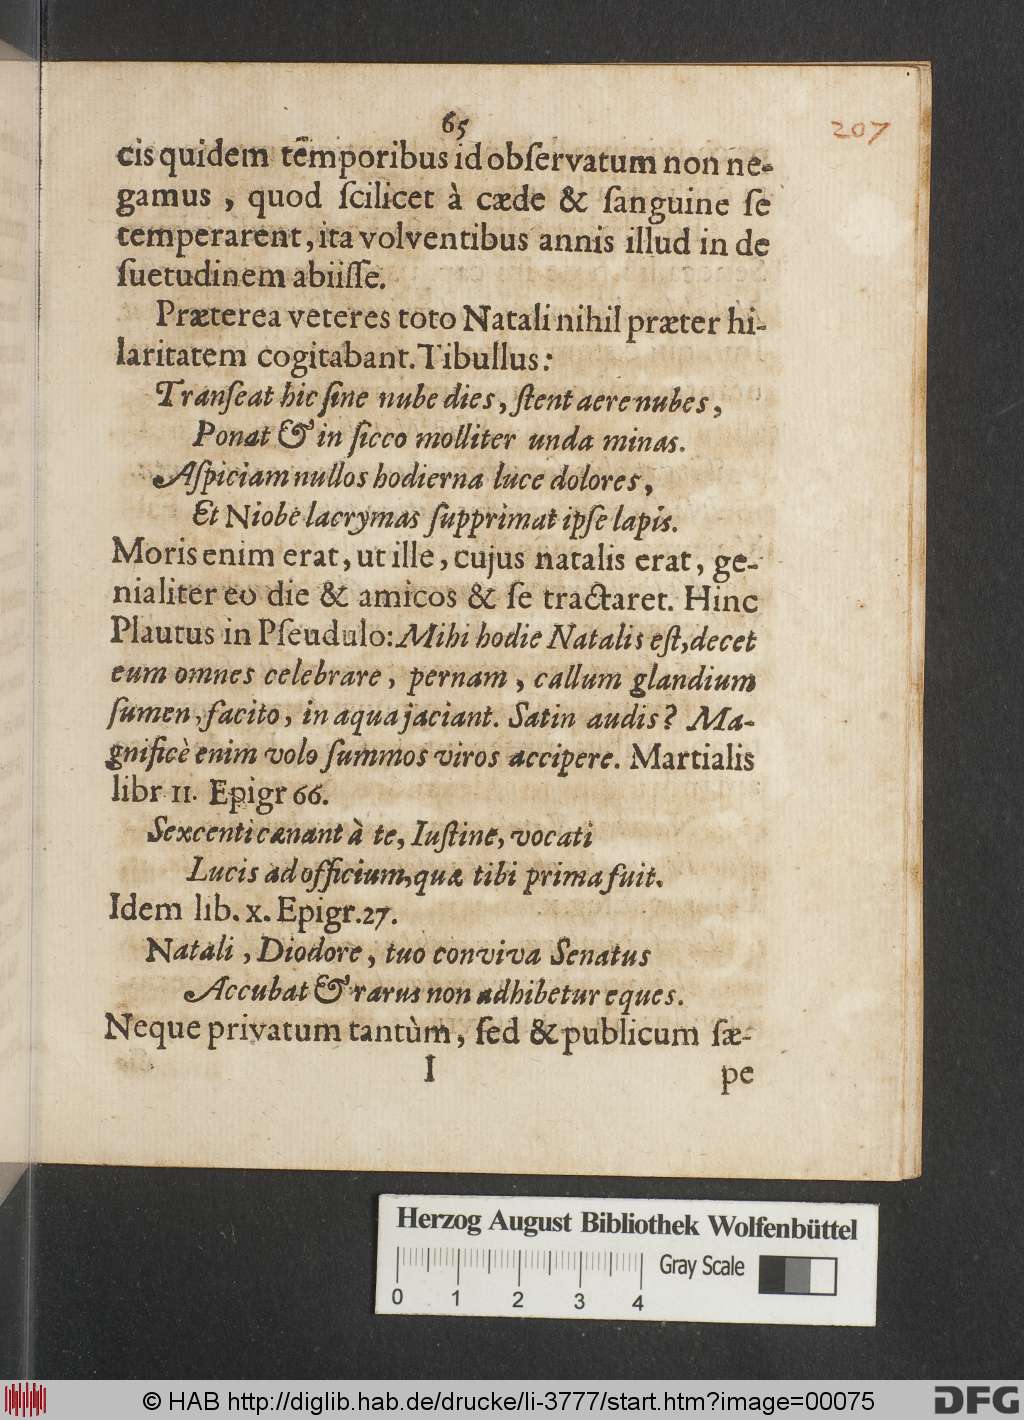 65
207
cis quidem tẽmporibus id obſervatum non ne-
gamus, quod ſcilicet à cæde & ſanguine ſe
temperarent, ita volventibus annis illud in de
ſuetudinem abiiſſe.
Præterea veteres toto Natali nihil præter hi-
laritatem cogitabant. Tibullus:
Tranſeat hic ſine nube dies, ſtent aere nubes,
Ponat & in ſicco molliter unda minas.
Aſpiciam nullos hodierna luce dolores,
Et Niobe lacrymas ſupprimat ipſe lapis.
Moris enim erat, ut ille, cujus natalis erat, ge-
nialiter eo die & amicos & ſe tractaret. Hinc
Plautus in Pſeudulo: Mihi hodie Natalis eſt, decet
eum omnes celebrare, pernam, callum glandium
ſumen, facito, in aqua jaciant. Satin audis? Ma-
gnificè enim volo ſummos viros accipere. Martialis
libr 11. Epigr 66.
Sexcenti cænant à te, Iuſtine, vocati
Lucis ad officium, quæ tibi prima fuit.
Idem lib. x. Epigr. 27.
Natali, Diodore, tuo conviva Senatus
Accubat & rarus non adhibetur eques.
Neque privatum tantùm, ſed & publicum ſæ-
I
pe
Herzog August Bibliothek Wolfenbüttel
Gray Scale
0 1 2 3 4
© HAB http://diglib.hab.de/drucke/li-3777/start.htm?image=00075
DFG